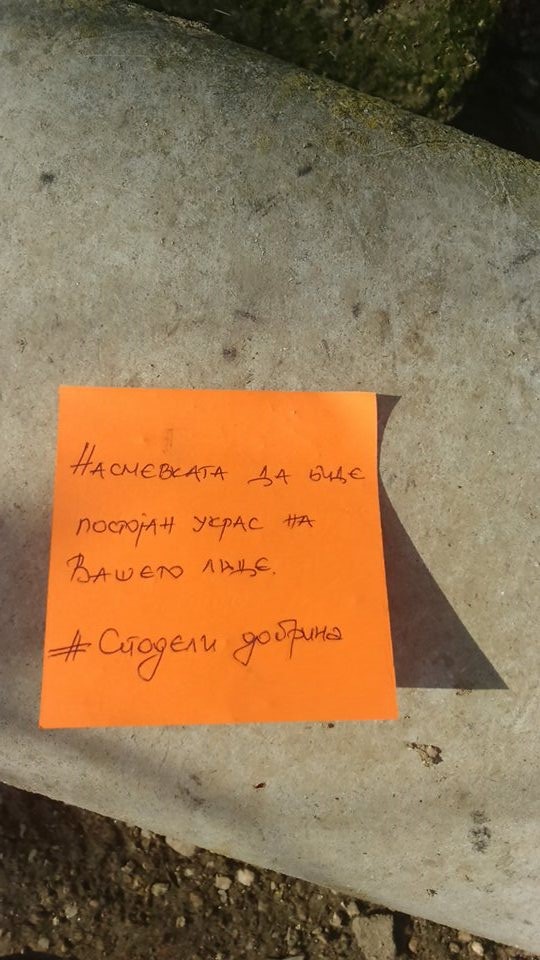 Насмевката да биде
постојан украс на
Вашето лице.
# Сподели добрина